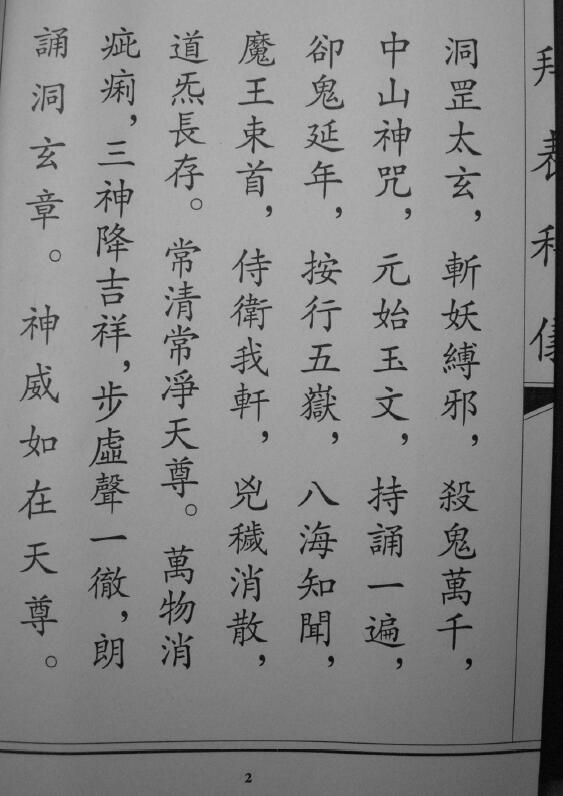 拜表科儀
洞罡太玄，斬妖縛邪，殺鬼萬千，
中山神咒，元始玉文，持誦一遍，
卻鬼延年，按行五嶽，八海知聞，
魔王束首，侍衛我軒，兇穢消散，
道炁長存。常清常凈天尊。萬物消
疵痢，三神降吉祥，步虛聲一徹，朗
誦洞玄章。神威如在天尊。
2